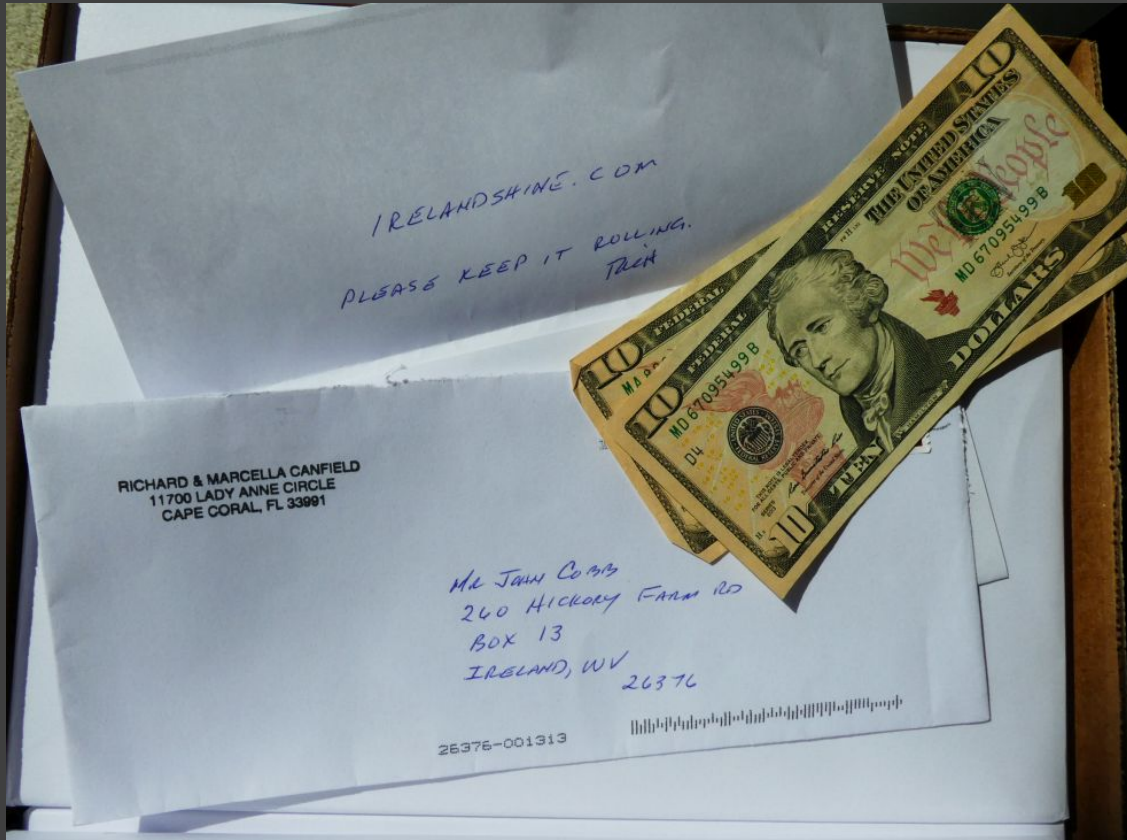 IRELANDSHINE.COM
PLEASE KEEP IT ROLLING.
RICH
RICHARD & MARCELLA CANFIELD
11700 LADY ANNE CIRCLE
CAPE CORAL, FL 33991
Mr JOHN COBB
260 HICKORY FARM RD
BOX 13
IRELAND, WV
26376
26376-001313
10
FEDERAL
10
FEDERAL RESERVE NOTE
THE UNITED STATES
OF AMERICA
10
We the People
10
MD 67095499 B
MD 67095499 B
D4
TEN DOLLARS
10